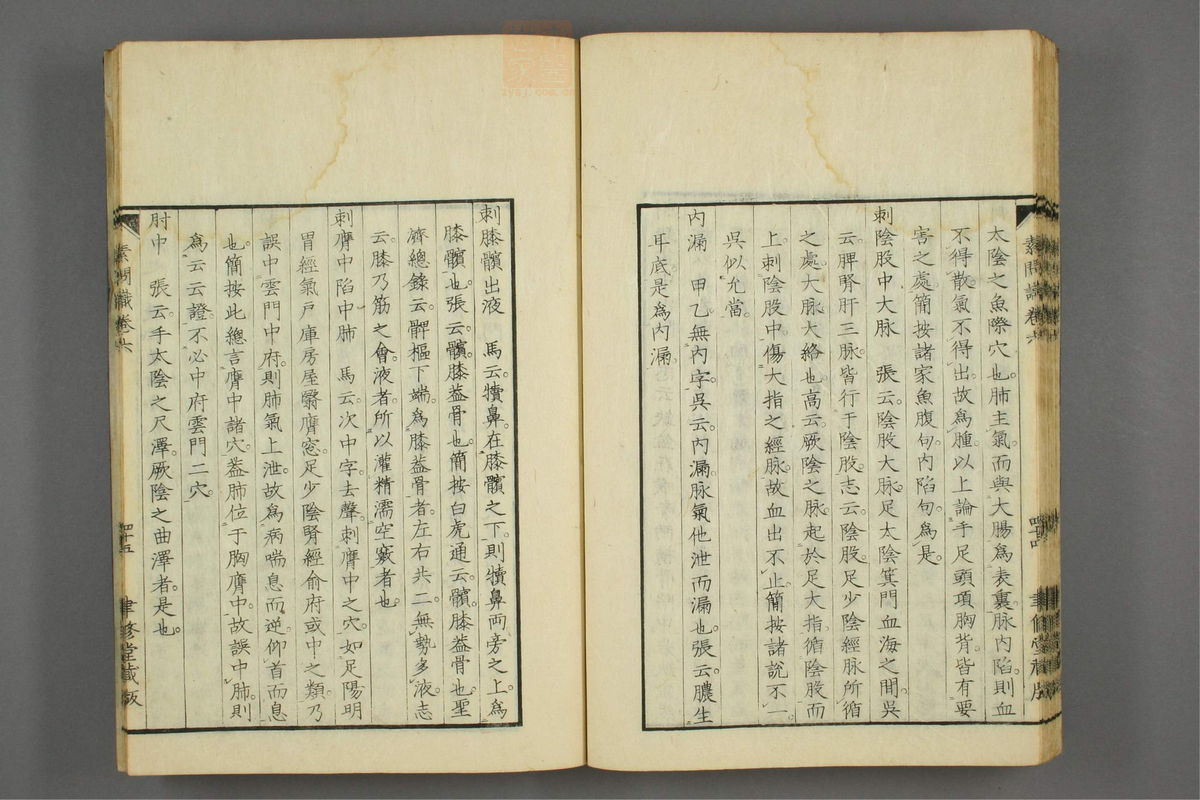 太陰之魚際穴也。肺主氣而與大腸爲表裏。脉内陷則血
不得散。氣不得出。故爲腫。以上論手足頭項胸背。皆有要
害之處。簡按諸家魚腹句。内陷句。爲是。
刺陰股中大脉　張云。陰股大脉。足太陰箕門血海之間。吳
云。脾腎肝三脉。皆行于陰股。志云。陰股。足少陰經脉所循
之處。大脉。大絡也。高云。厥陰之脉。起於足大指。循陰股而
上。刺陰股中。傷大指之經脉。故血出不止。簡按諸說不一。
吳似允當。
内漏　甲乙無内字。吳云。内漏。脉氣他泄而漏也。張云。膿生
耳底。是爲内漏。
素問識卷六
四十四
聿修堂藏版
刺膝髕出液　馬云。犢鼻。在膝髕之下。則犢鼻両旁之上爲
膝髕也。張云。髕。膝葢骨也。簡按白虎通云。髕。膝葢骨也。聖
濟總錄云。髀樞下端。爲膝葢骨者。左右共二。無勢多液。志
云。膝乃筋之會。液者。所以灌精濡空竅者也。
刺膺中陷中肺　馬云。次中字。去聲。刺膺中之穴。如足陽明
胃經氣戶庫房屋翳膺窓。足少陰腎經俞府或中之類。乃
誤中雲門中府。則肺氣上泄。故爲病喘息而逆。仰首而息
也。簡按此總言膺中諸穴。葢肺位于胸膺中。故誤中肺。則
爲云云證。不必中府雲門二穴。
肘中　張云。手太陰之尺澤。厥陰之曲澤者。是也。
素問識卷六
四十五
聿修堂藏版